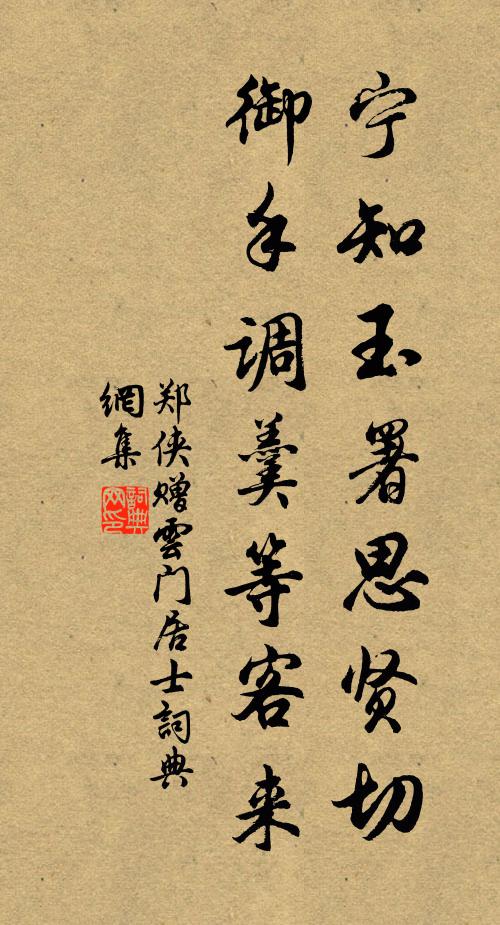 宁知玉署思贤切
御手调羹等客来
郑侠赠雲门居士詞典
網集
詞典
网印